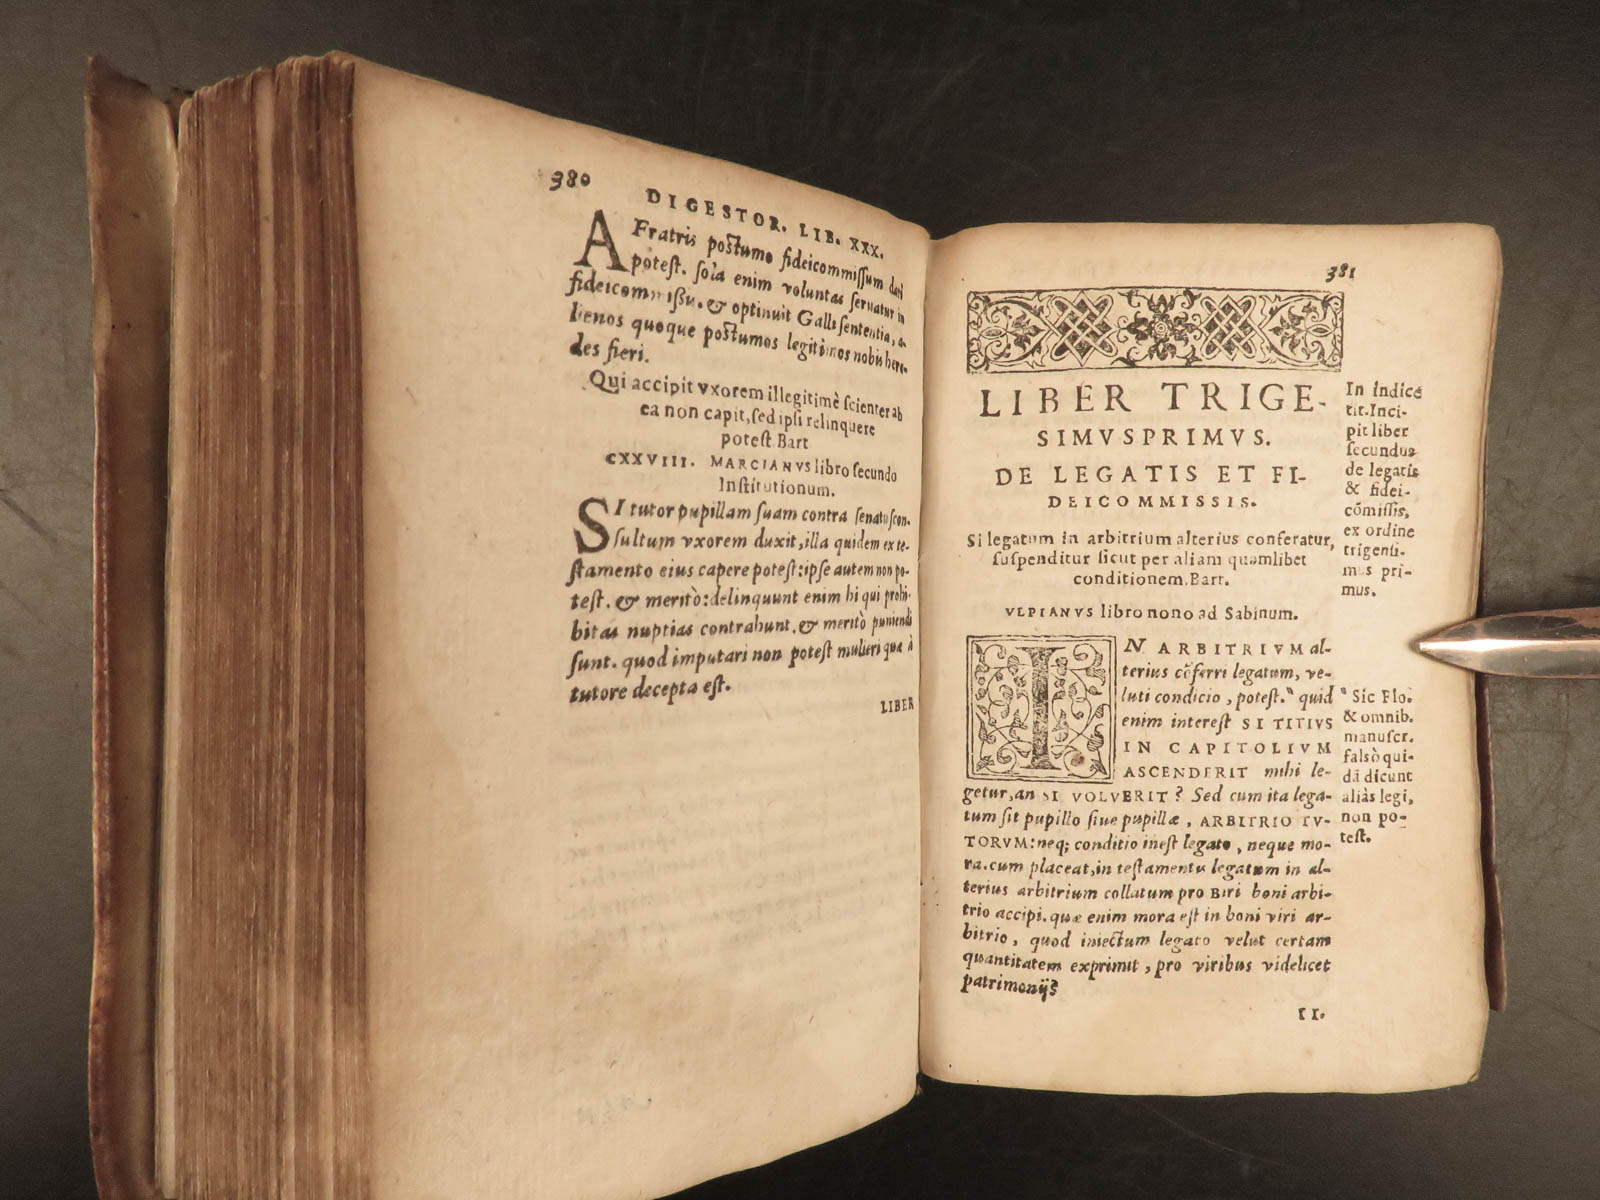 380
DIGESTOR. LIB. XXX.
A Fratris postumo fideicommissum dari
potest. sola enim voluntas seruatur in
fideicommißu. & optinuit Galli sententia, a-
lienos quoque postumos legitimos nobis here-
des fieri.
Qui accipit vxorem illegitimè scienter ab
ea non capit, sed ipsi relinquere
potest. Bart
CXXVIII. MARCIANVS libro secundo
Institutionum.
SI tutor pupillam suam contra senatuscon-
sultum vxorem duxit, illa quidem ex te-
stamento eius capere potest: ipse autem non po-
test. & meritò: delinquunt enim hi qui prohi-
bitas nuptias contrahunt. & meritò puniendi
sunt. quod imputari non potest mulieri quæ à
tutore decepta est.
LIBER
381
LIBER TRIGE-
SIMVSPRIMVS.
DE LEGATIS ET FI-
DEICOMMISSIS.
Si legatum in arbitrium alterius conferatur,
suspenditur sicut per aliam quamlibet
conditionem. Bart.
VLPIANVS libro nono ad Sabinum.
IN ARBITRIVM al-
terius cōferri legatum, ve-
luti condicio, potest." quid
enim interest SI TITIVS
IN CAPITOLIVM
ASCENDERIT mihi le-
getur, an SI VOLVERIT? Sed cum ita lega-
tum sit pupillo siue pupillæ, ARBITRIO TV-
TORVM: neq; conditio inest legato, neque mo-
ra. cum placeat, in testamentu legatum in al-
terius arbitrium collatum pro BIRI boni arbi-
trio accipi. quæ enim mora est in boni viri ar-
bitrio, quod iniectum legato velut certam
quantitatem exprimit, pro viribus videlicet
patrimonij?
II.
In indice
tit. Inci-
pit liber
secundus
de legatis
& fidei-
cōmissis,
ex ordine
trigensi-
mus pri-
mus.
" Sic Flo.
& omnib.
manuscr.
falsò qui-
dā dicunt
aliàs legi,
non po-
test.